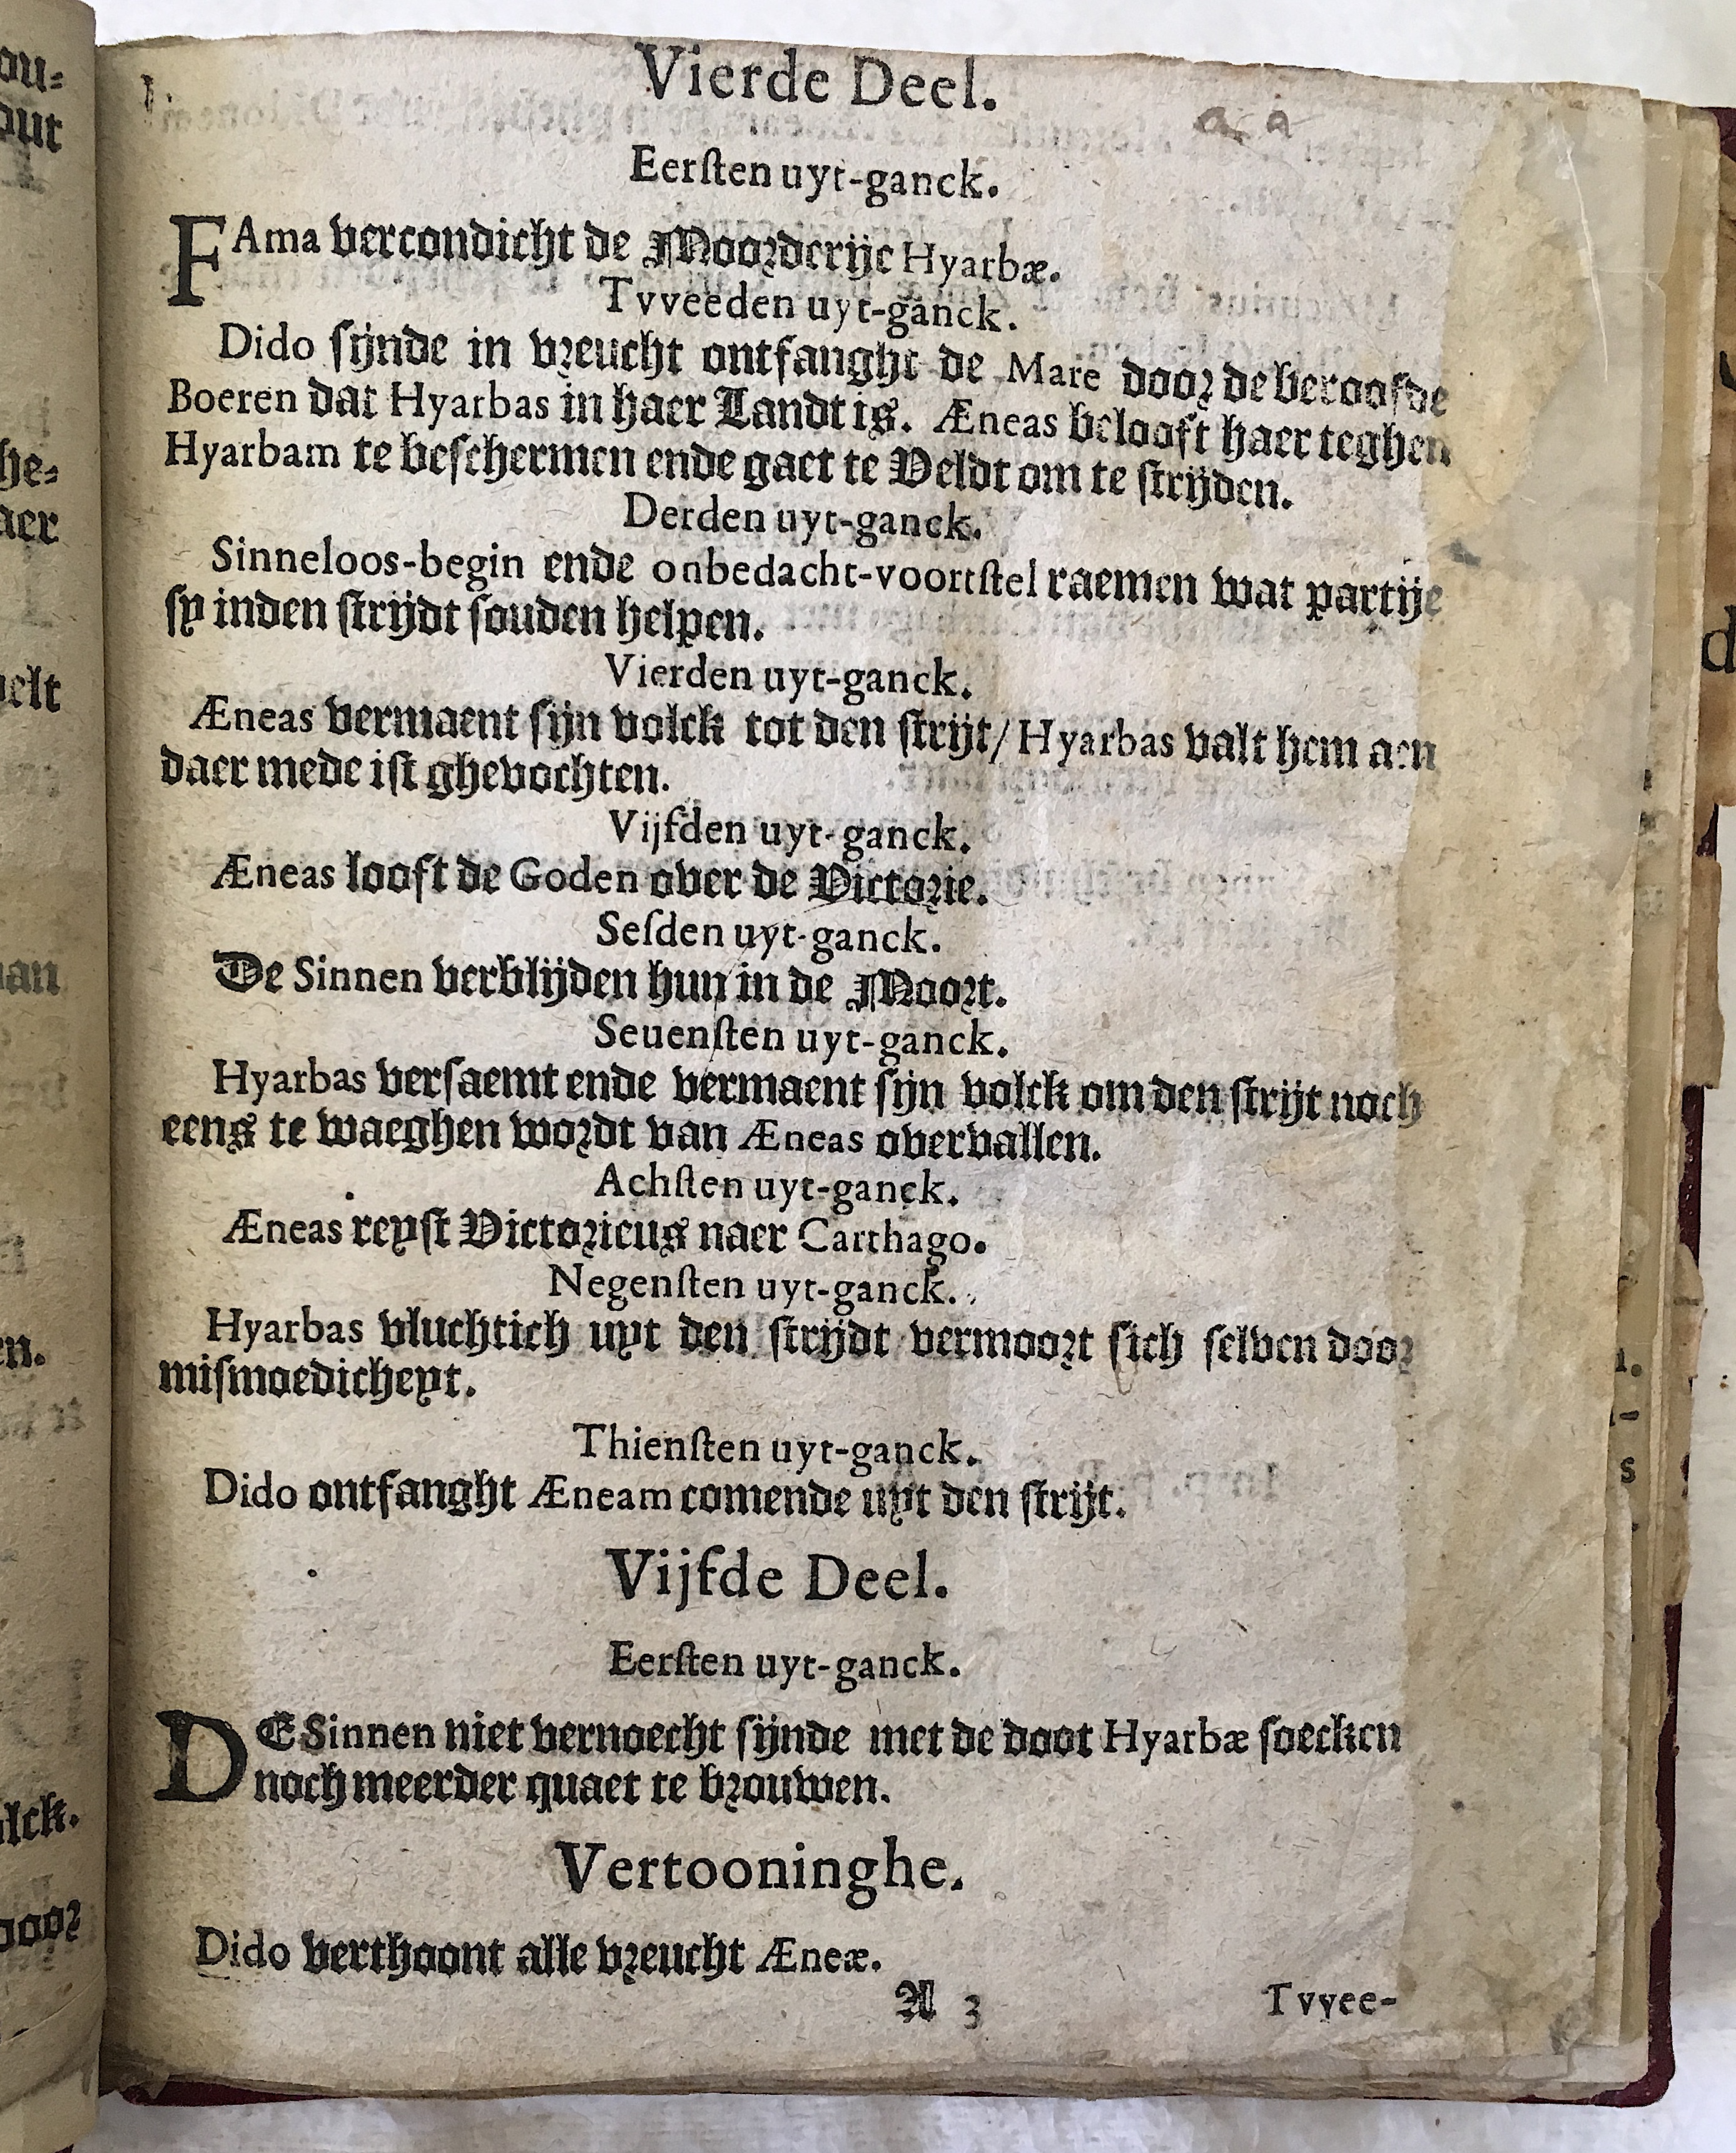 Vierde Deel.
Eerſten uyt-ganck.
FAma vercondicht de Moorderije Hyarbæ.
Tvveeden uyt-ganck.
Dido ſijnde in vreucht ontfanght de Mare door de beroofde
Boeren dat Hyarbas in haer Landt is. Æneas belooft haer teghen
Hyarbam te beſchermen ende gaet te Veldt om te ſtrijden.
Derden uyt-ganck.
Sinneloos-begin ende onbedacht-voortſtel raemen wat partije
ſy inden ſtrijdt ſouden helpen.
Vierden uyt-ganck.
Æneas vermaent ſijn volck tot den ſtrijt/ Hyarbas valt hem aen
daer mede iſt ghevochten.
Vijfden uyt-ganck.
Æneas looft de Goden over de Victorie.
Seſden uyt-ganck.
De Sinnen verblijden hun in de Moort.
Seuenſten uyt-ganck.
Hyarbas verſaemt ende vermaent ſijn volck om den ſtrijt noch
eens te waeghen wordt van Æneas overvallen.
Achſten uyt-ganck.
Æneas reyſt Victorieus naer Carthago.
Negenſten uyt-ganck.
Hyarbas vluchtich uyt den ſtrijdt vermoort ſich ſelven door
miſmoedicheyt.
Thienſten uyt-ganck.
Dido ontfanght Æneam comende uyt den ſtrijt.
Vijfde Deel.
Eerſten uyt-ganck.
DE Sinnen niet vernoecht ſijnde met de doot Hyarbæ ſoecken
noch meerder quaet te brouwen.
Vertooninghe.
Dido verthoont alle vreucht Æneæ.
A 3 Tvvee-